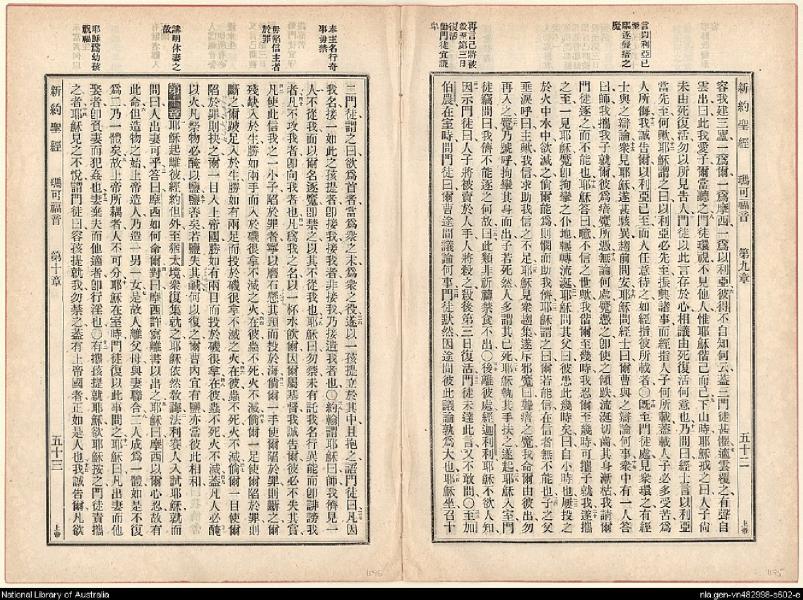 言以利亞已
驅逐聾瘖之
魔
再言己將被
殺至第三日
復活
新約聖經 瑪可福音 第九章 五十二 上帝
容我建三廬一爲爾一爲摩西一爲以利亞彼得不自知何云蓋三門徒甚懼遂雲覆之有聲自
雲出曰此我愛子爾當聽之門徒環視不見他人惟耶穌偕己而已下山時耶穌戒之曰人子尙
未由死復活勿以所見告人門徒以此言存於心相議由死復活何意也乃問曰經士言以利亞
當先至何歟耶穌謂之曰以利亞必先至振興諸事而經指人子何所載蓋載人子必多受苦爲
人所侮我誠告爾以利亞已至而人任意待之如經指彼所載者○旣至門徒處見衆環之有經
士與之辯論衆見耶穌遂甚駭異趨前問安耶穌問經士曰爾曹與之辯論何事衆中有一人答
曰師我攜我子就爾彼爲瘖魔所憑無論何處魔憑之卽使之傾跌流涎切齒其身漸枯我請爾
門徒逐之而不能也耶穌答曰噫不信之世歟我偕爾至幾時我忍爾至幾時可攜子就我遂攜
之至一見耶穌魔卽拘攣之仆地輾轉流涎耶穌問其父曰彼患此幾時矣曰自小時也屢投之
於火中水中欲滅之倘爾能爲則憫而助我儕耶穌謂之曰爾若能信在信者無不能也子之父
垂淚呼曰主歟我信求助我信之不足耶穌見衆趨集遂斥邪魔曰聾瘖之魔我命爾由彼出勿
再入之魔乃號呼拘攣其身而出子若死然人多謂其已死耶穌執其手扶之遂起耶穌入室門
徒竊問曰我儕不能逐之何故曰此類非祈禱禁食不出○後離彼處經迦利利耶穌不欲人知
因示門徒曰人子將被賣於人手人將殺之殺後第三日復活門徒未達此言又不敢問○至加
伯農在室時問門徒曰爾曹途間議論何事門徒默然因途間彼此議論孰爲大也耶穌坐召十
奉主名行奇
事毋禁
毋陷信主者
於罪
講明休妻之
故
耶穌爲幼孩
祝福
二門徒謂之曰欲爲首者當爲衆之末爲衆之役遂以一孩提立於其中且抱之語門徒曰凡因
我名接一如此之孩提者卽接我接我者非接我乃接遣我者也○約翰謂耶穌曰師我儕見一
人不從我而以爾名逐魔卽禁之以其不從我也耶穌曰勿禁未有託我名行異能而卽誹謗我
者凡不攻我者卽向我者也凡爲我之名以一杯水飮爾因爾屬基督我誠告爾彼必不失其賞
凡使此信我之一小子陷於罪者寧以磨石懸其頸而投於海倘爾一手使爾陷於罪則斷之爾
殘缺入於生勝如兩手而入於磯很拿不滅之火在彼蟲不死火不滅倘爾一足使爾陷於罪則
斷之爾跛足入於生勝如有兩足而投於磯很拿不滅之火在彼蟲不死火不滅倘爾一目使爾
陷於罪則抉之爾一目入上帝國勝如有兩目而投於磯很拿在彼蟲不死火不滅蓋凡人必醃
以火凡祭物必醃以鹽鹽善矣若鹽失其鹹何以復之爾曹內宜有鹽亦當彼此相和
第十章耶穌起離彼經約但外至猶太境衆復集就之耶穌依然敎誨法利賽人入試耶穌就而
問曰人出妻可乎答曰摩西如何命爾對曰摩西許寫離書以出之耶穌曰摩西以爾心忍故有
此命但造物之始上帝造人乃造一男一女是故人離父母與妻聯合二人成爲一體如是不復
爲二乃一體矣故上帝所耦者人不可分耶穌在室時門徒復以此事問之耶穌曰凡出妻而他
娶者卽負妻而犯姦也妻棄夫而他適者卽行淫也○有攜孩提就耶穌欲耶穌按之門徒責攜
之者耶穌見之不悅謂門徒曰容孩提就我勿禁之蓋有上帝國者正如是人也我誠告爾凡欲
新約聖經 瑪可福音 第十章 五十三 上帝
National Library of Australia
nla.gen-vn482998-s602-e